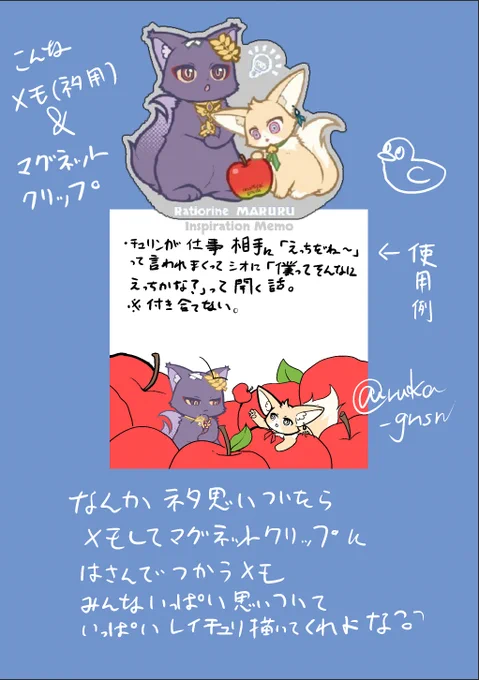 こんな
メモ(ネタ用)
&
マグネット
クリップ
Ratiorine MARURU
Inspiration Memo
・チュリンが仕事相手に「えっちだね〜」
って言われまくってシオに「僕ってそんなに
えっちかな?」って聞く話。
・※付き合てない。
← 使用例
@ruka
-gnsn
なんか ネタ思いついたら
メモしてマグネットクリップに
はさんでつかうメモ
みんないっぱい思いついて
いっぱいレイチュリ描いてくれよな??